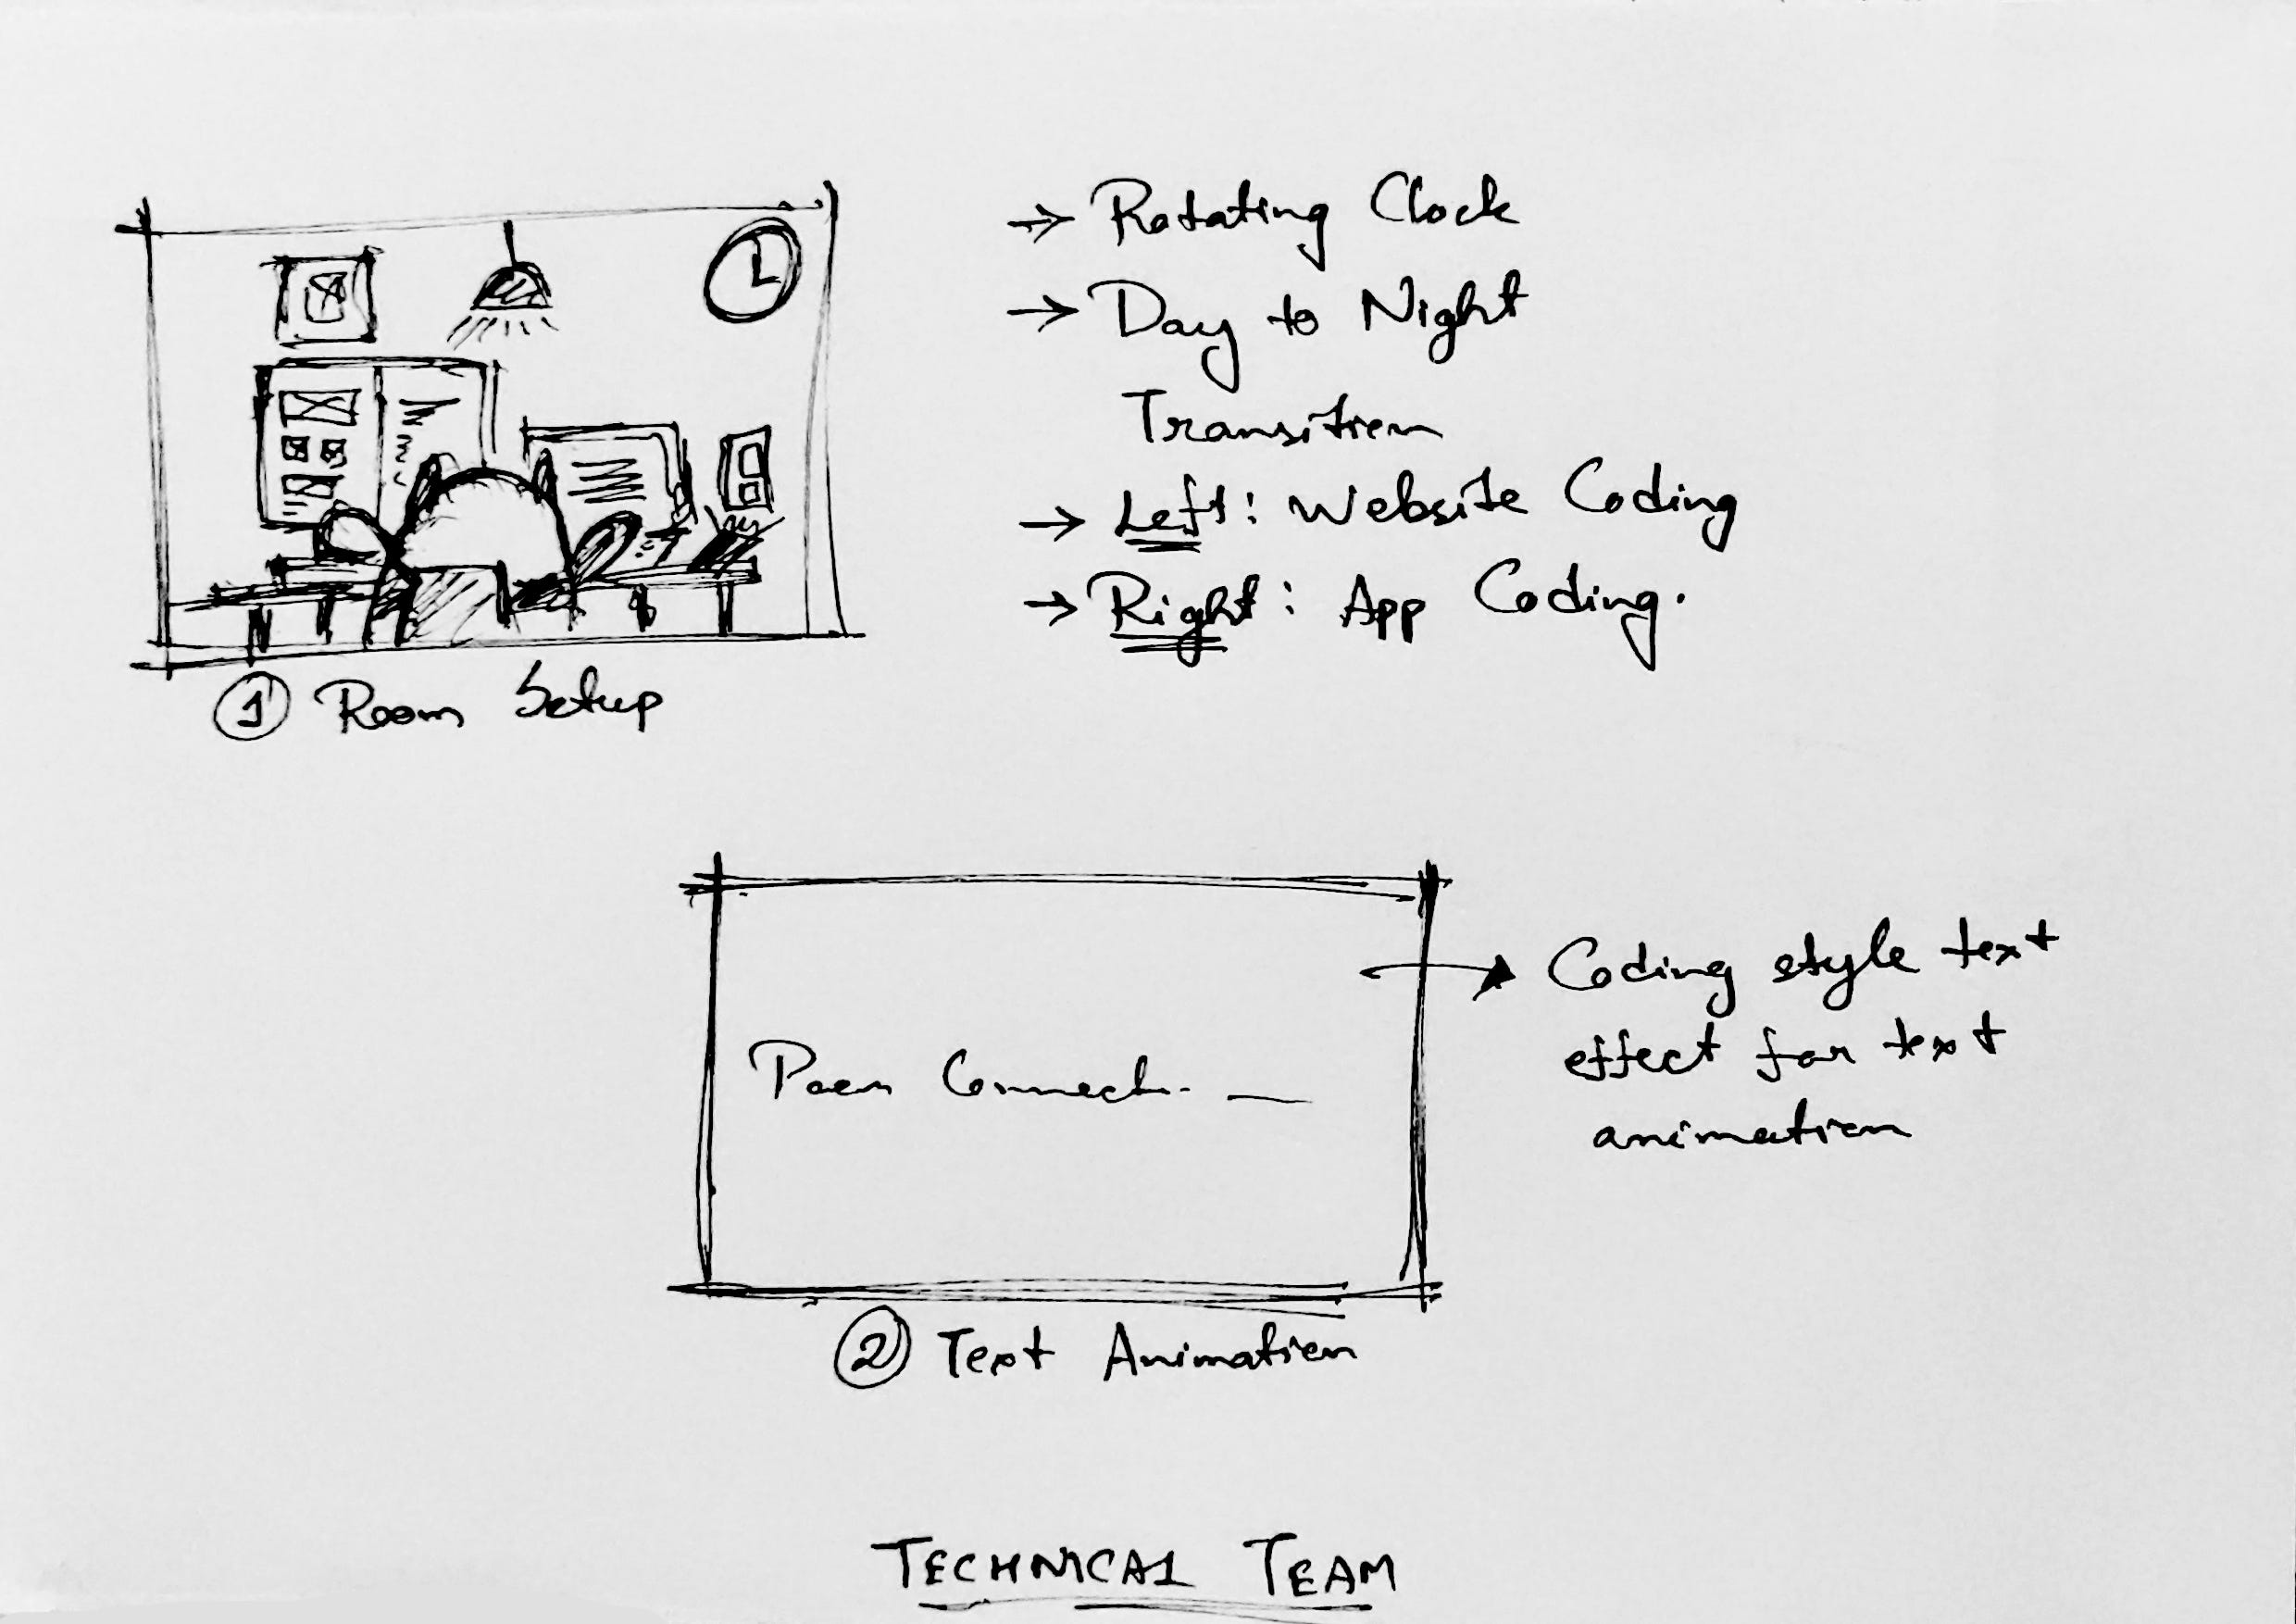 → Rotating Clock
→ Day to Night
Transition
→ Left: Website Coding
→ Right: App Coding.
① Room Setup
Connect. _
→ Coding style text
effect for text
animation
② Text Animation
TECHNICAL TEAM